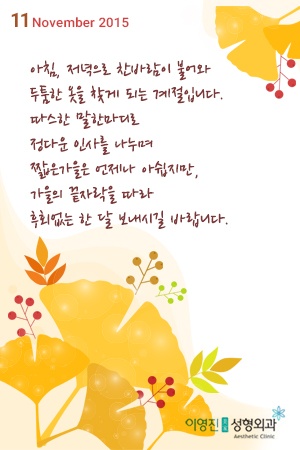 11 November 2015
아침, 저녁으로 찬바람이 불어와
두툼한 옷을 찾게 되는 계절입니다.
따스한 말한마디로
정다운 인사를 나누며
짧은가을은 언제나 아쉽지만,
가을의 끝자락을 따라
후회없는 한 달 보내시길 바랍니다.
이영진 성형외과
Aesthetic Clinic